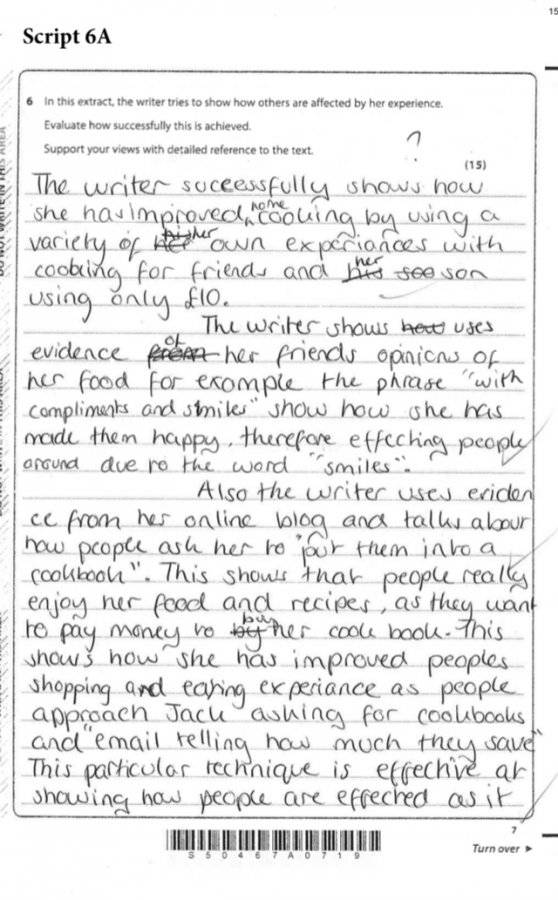 15
Script 6A
6 In this extract, the writer tries to show how others are affected by her experience.
Evaluate how successfully this is achieved.
Support your views with detailed reference to the text.
?
(15)
The writer successfully shows how
she has improved home cooking by using a
variety of her own experiances with
cooking for friends and her son
using only £10.
The writer shows uses
evidence of her friends opinions of
her food for example the phrase "with
compliments and smiles" show how she has
made them happy, therefore effecting people
around due to the word "smiles".
Also the writer uses eviden
ce from her online blog and talks about
how people ask her to "put them into a
cookbook". This shows that people really
enjoy her food and recipes, as they want
to pay money to buy her cook book. This
shows how she has improved peoples
shopping and eating experiance as people
approach Jack asking for cookbooks
and "email telling how much they save"
This particular technique is effective at
showing how people are effected as it
7
S50467A0719
Turn over ►